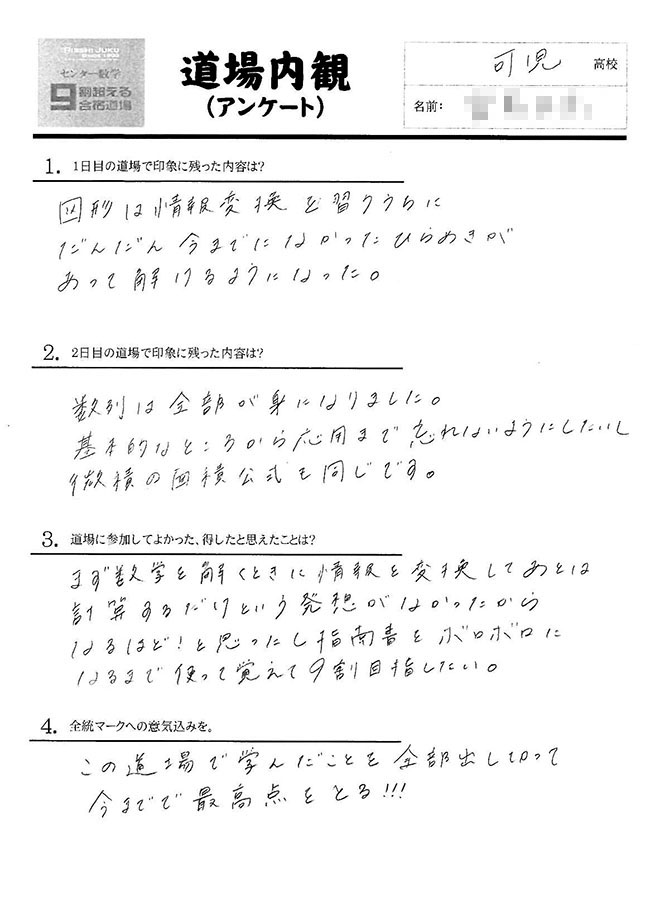 SINCE 1993
センター数学
9割超える
合宿道場
道場内観
(アンケート)
可児 高校
名前:
1. 1日目の道場で印象に残った内容は?
図形は情報変換を習ううちに
だんだん今までになかったひらめきが
あって解けるようになった。
2. 2日目の道場で印象に残った内容は?
数列は全部が身になりました。
基本的なところから応用まで忘れないようにしたいし
微積の面積公式も同じです。
3. 道場に参加してよかった、得したと思えたことは?
まず数学を解くときに情報を変換してあとは
計算するだけという発想がなかったから
なるほど!と思ったし指南書をボロボロに
なるまで使って覚えて9割目指したい。
4. 全統マークへの意気込みを。
この道場で学んだことを全部出し切って
今までで最高点をとる!!!